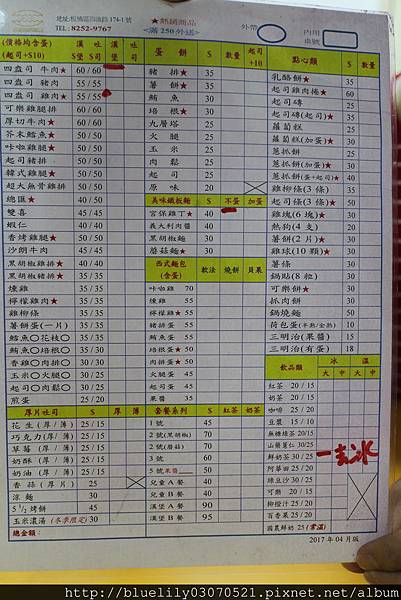 地址:板橋區四維路 174-1 號
TEL: 8252-9767
★熱銷商品
<滿 250 外送>
外帶
內用
桌號
(價格均含蛋)
(起司+$10)
漢堡 吐司
$ $
漢堡
吐司
四盎司 牛肉★ 60 / 60
四盎司 豬肉 55 / 55
四盎司 雞肉★ 55 / 55
可樂雞腿排 60 / 60
厚切牛肉★ 60 / 60
芥末鱈魚★ 50 / 50
咔啦雞腿★ 50 / 50
起司豬排 50 / 50
韓式雞腿 50 / 50
超大無骨雞排 50 / 50
總匯★ 40 / 40
雙喜 45 / 45
蝦仁 40 / 40
香烤雞腿★ 50 / 50
沙朗牛肉 45 / 45
黑胡椒雞排★ 35 / 35
黑胡椒豬排★ 35 / 35
燻雞 35 / 35
檸檬雞肉★ 35 / 35
雞柳條 35 / 35
薯餅蛋(一片) 35 / 35
鱈魚○花枝○ 35 / 35
鮪魚○培根○ 35 / 30
香雞○肉排○ 35 / 30
玉米○火腿○ 30 / 25
起司○肉鬆○ 30 / 25
煎蛋 25 / 20
厚片吐司 $ 厚 薄
花生(厚/薄) 25 / 15
巧克力(厚/薄) 25 / 15
草莓(厚/薄) 25 / 15
奶酥(厚/薄) 25 / 15
奶油(厚/薄) 25 / 15
香蒜(厚片) 25
涼麵 30
5 1/2 烤餅 45
玉米濃湯(冬季限定) 30
總金額:
蛋餅 $ 數量 起司+10
豬排★ 35
薯餅★ 30
鮪魚 30
培根★ 30
九層塔 25
火腿 25
玉米 25
肉鬆 25
起司 25
原味 20
美味鐵板麵 $ 不蛋 加蛋
宮保雞丁★ 40
義大利肉醬 40
黑胡椒麵 30
蘑菇麵★ 30
西式麵包
(含蛋)
軟法 燒餅 貝果
咔啦雞 70
燻雞 55
檸檬雞★ 55
豬排蛋 55
鮪魚蛋 55
培根蛋★ 50
肉排蛋★ 50
火腿蛋 45
起司蛋 45
果醬 35
套餐系列 $ 紅茶 奶茶
1 號 45
2 號(黑胡椒) 70
2 號(蘑菇) 70
3 號 60
5 號果醬 50
兒童 A 餐 40
兒童 B 餐 40
漢堡 A 餐 90
漢堡 B 餐 95
點心類 $ 數量
乳酪餅★ 35
起司雞肉捲★ 60
起司磚 25
起司磚(起司)★ 35
蘿蔔糕 25
蘿蔔糕(加蛋)★ 30
蔥抓餅 25
蔥抓餅(加蛋)★ 30
蔥抓餅(蛋+起司)★ 40
雞柳條(3 條) 35
起司條(3 條)★ 50
雞塊(6 塊)★ 30
熱狗(4 支) 20
薯餅(2 片)★ 30
雞球(10 顆)★ 30
薯條 30
鍋貼(8 粒) 30
可頌★ 30
抓肉餅 30
鍋燒麵 50
荷包蛋(半熟/全熟) 10
三明治(果醬) 15
三明治(有蛋) 18
飲品類 冰 溫
大 中 大 中
紅茶 20 / 15
奶茶 20 / 15
咖啡 25 / 20
豆漿 15 / 10
無糖綠茶 20/15
山藥薏仁 30/25
鮮奶茶 30 / 25
阿華田 25 / 20
綠豆沙 30 / 25
可樂 20 / 15
柳橙汁 25 / 20
百香果 25 / 20
國農鮮奶 25 (常溫)
一去冰
2017 年 04 月版
http://bluelily03070521.pixnet.net/album